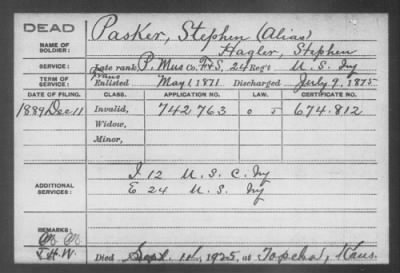 DEAD
NAME OF SOLDIER:
Pasker, Stephen (Alias)
Hagler, Stephen
SERVICE:
Late rank P. Mus Co. F&S, 24 Reg't U. S. Inf
TERM OF SERVICE:
Enlisted May 1 1871 Discharged July 9, 1875
DATE OF FILING. CLASS. APPLICATION NO. LAW. CERTIFICATE NO.
1889 Dec 11 Invalid, 742763 0 5 674.812
Widow,
Minor,
ADDITIONAL SERVICES:
I 12 U. S. C. Inf
E 24 U. S. Inf
REMARKS:
J.H.W.
Died Sept. 1925, at Topeka, Kans.